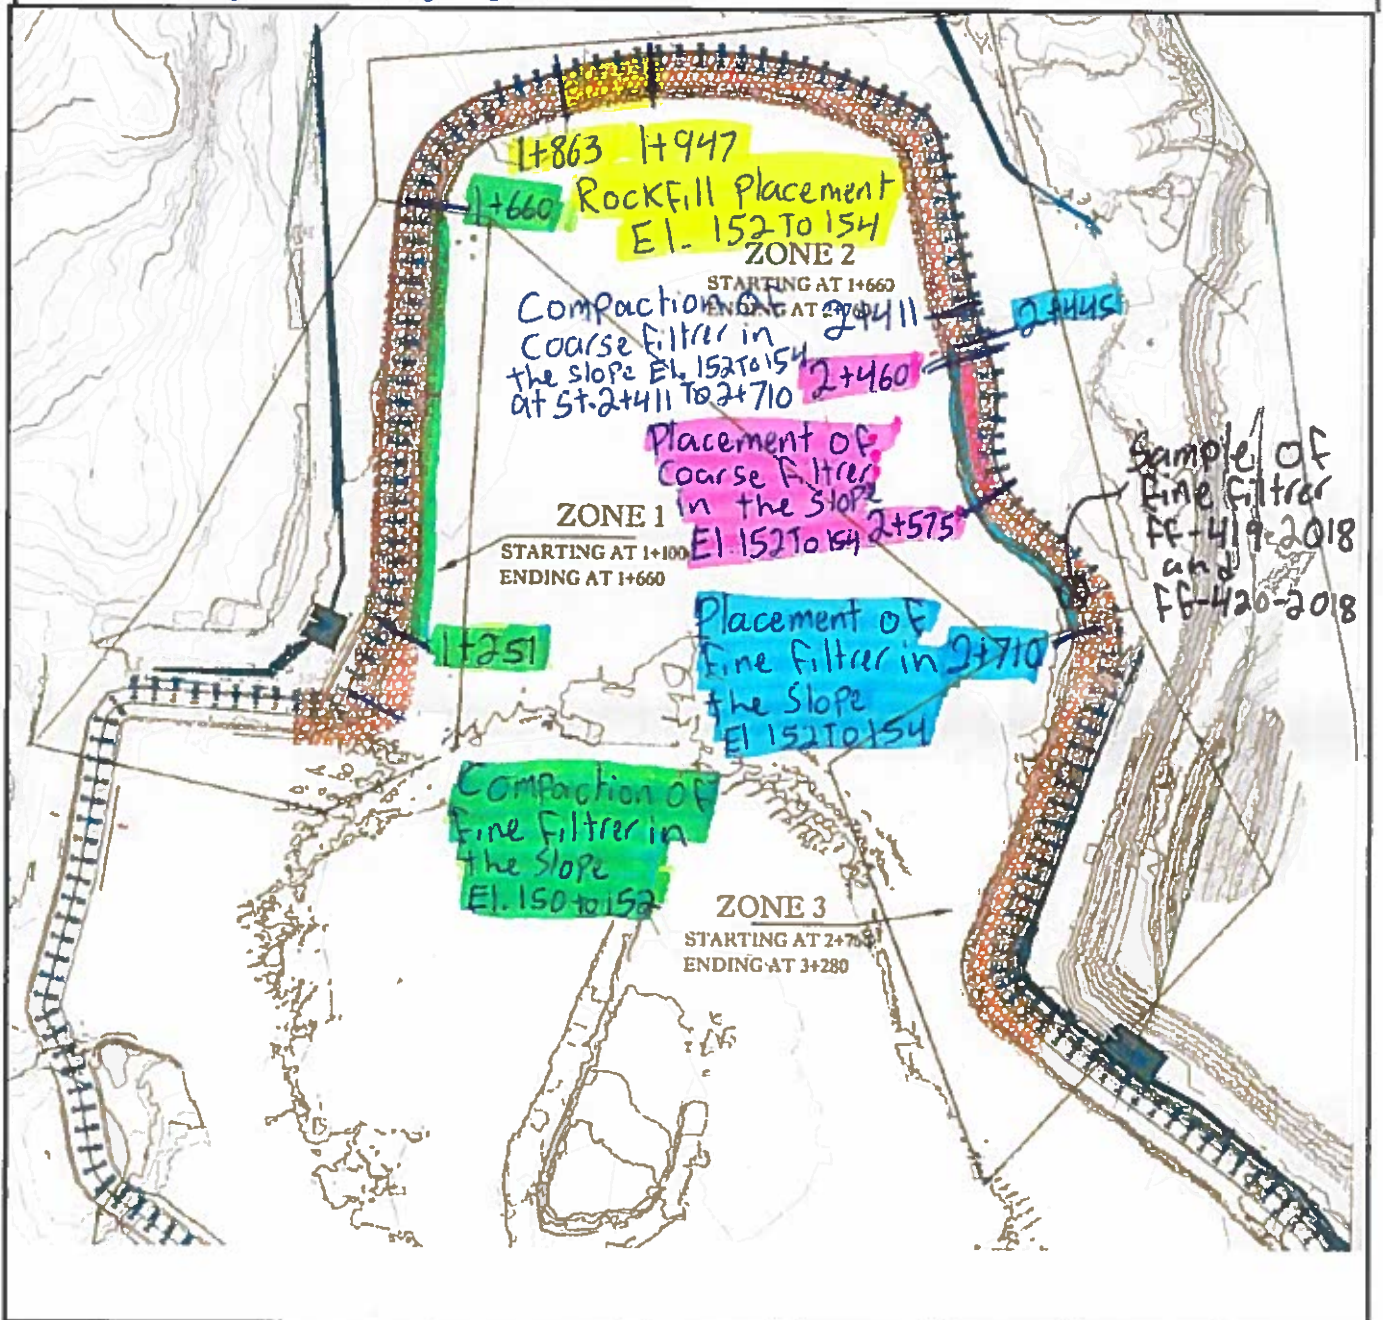 1+863 1+947
1+660
Rockfill Placement
El. 152 To 154
ZONE 2
STARTING AT 1+660
ENDING AT
2+411
2+445
Compaction of
Coarse Filtrer in
the slope El. 152 To 154
at St. 2+411 To 2+710
2+460
Placement of
Coarse Filtrer
in the Slope
El. 152 To 154
2+575
Sample of
Fine Filtrer
FF-419-2018
and
FF-420-2018
ZONE 1
STARTING AT 1+100
ENDING AT 1+660
1+251
Placement of
Fine Filtrer in
the Slope
El 152 To 154
2+710
Compaction of
Fine Filtrer in
the Slope
El. 150 to 152
ZONE 3
STARTING AT 2+760
ENDING AT 3+280